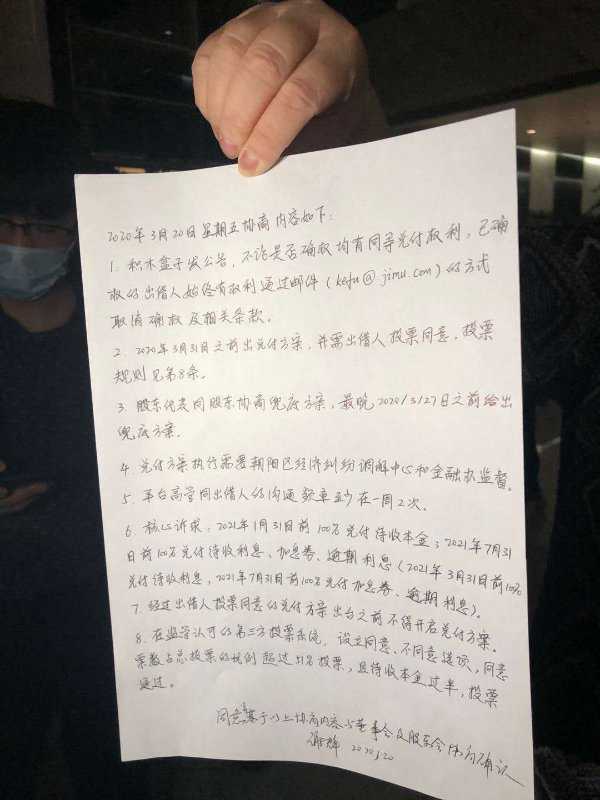 2020年3月20日星期五协商内容如下：
1. 积木盒子发公告，不论是否确权均有同等兑付权利，已确
权的出借人始终有权利通过邮件（kefu@jimu.com）的方式
取消确权及相关条款。
2. 2020年3月31日之前出兑付方案，并需出借人投票同意，投票
规则见第8条。
3. 股东代表同股东协商兜底方案，最晚2020/3/27日之前给出
兜底方案.
4. 兑付方案执行需要朝阳区经济纠纷调解中心和金融办监督。
5. 平台高管同出借人的沟通频率至少在一周2次。
6. 核心诉求，2021年1月31日前100%兑付待收本金；2021年7月31
日前100%兑付待收利息、加息券、逾期利息（2021年3月31日前100%
兑付待收利息，2021年7月31日前100%兑付加息券、逾期利息）。
7. 经过出借人投票同意的兑付方案出台之前不得开启兑付方案。
8. 在监管认可的第三方投票系统，设立同意、不同意选项，同意
票数占总投票的比例超过51%投票，且待收本金过半，投票
通过。
同意基于以上协商内容与董事会及股东会确认
2020.3.20